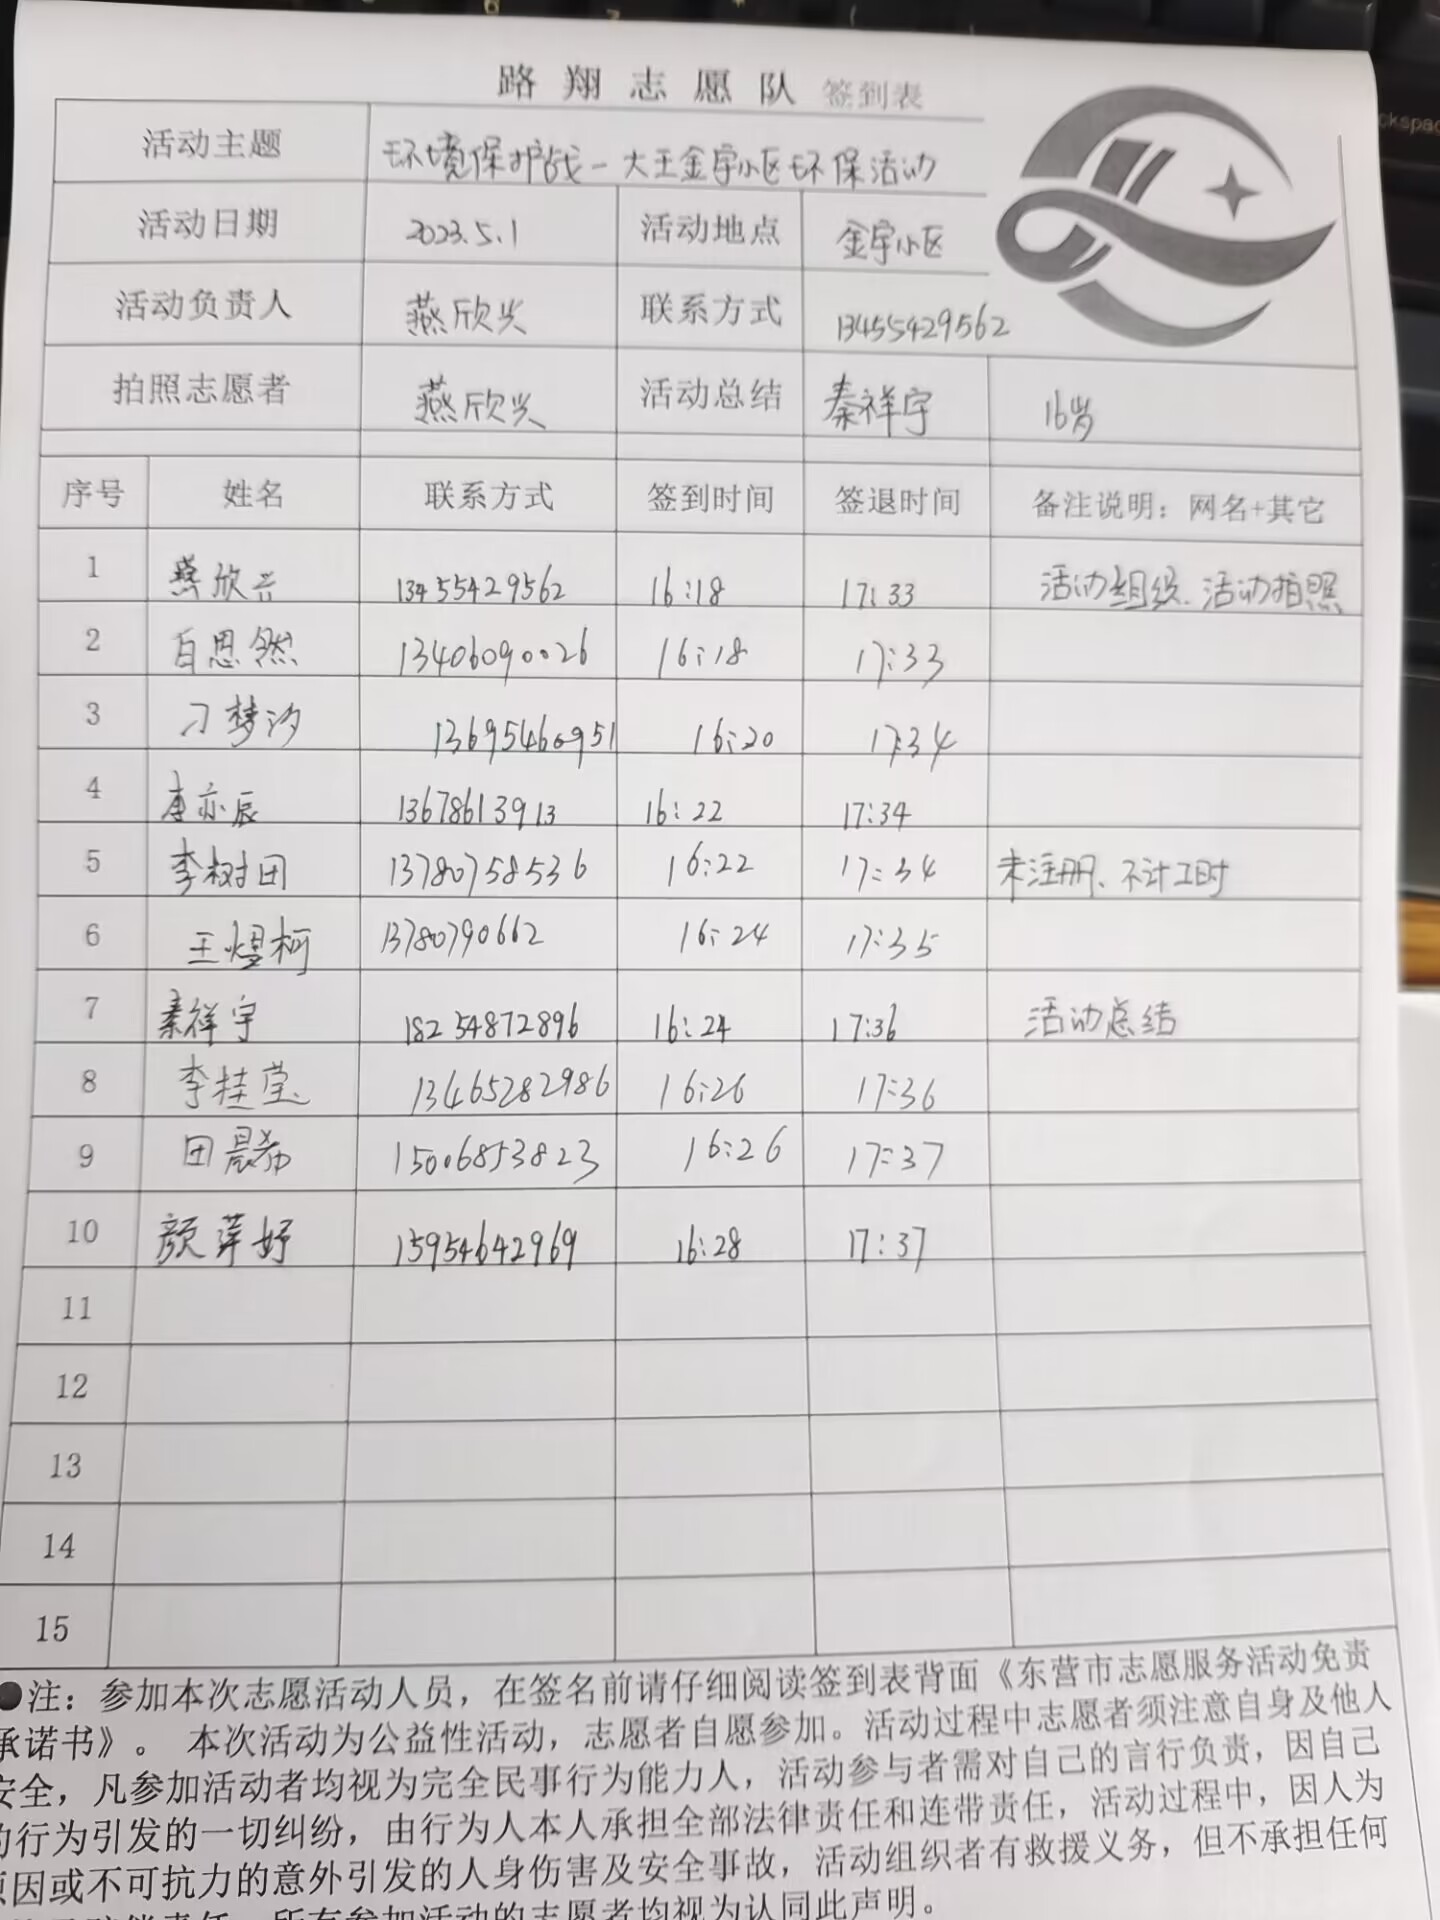 路翔志愿队 签到表
活动主题 环境保护战一大王金宇小区环保活动
活动日期 2023.5.1 活动地点 金宇小区
活动负责人 燕欣兴 联系方式 13455429562
拍照志愿者 燕欣兴 活动总结 秦祥宇 16岁
序号 姓名 联系方式 签到时间 签退时间 备注说明：网名+其它
1 燕欣兴 13455429562 16:18 17:33 活动组织、活动拍照
2 百思然 13406090026 16:18 17:33
3 刁梦汐 13695460951 16:20 17:34
4 李亦辰 13678613913 16:22 17:34
5 李树田 13780758536 16:22 17:34 未注册、不计工时
6 王煜柯 13780790662 16:24 17:35
7 秦祥宇 18254872896 16:24 17:36 活动总结
8 李桂莹 13465282986 16:26 17:36
9 田晨希 15006853823 16:26 17:37
10 颜萍妤 15954642969 16:28 17:37
11
12
13
14
15
●注：参加本次志愿活动人员，在签名前请仔细阅读签到表背面《东营市志愿服务活动免责
承诺书》。 本次活动为公益性活动，志愿者自愿参加。活动过程中志愿者须注意自身及他人
安全，凡参加活动者均视为完全民事行为能力人，活动参与者需对自己的言行负责，因自己
的行为引发的一切纠纷，由行为人本人承担全部法律责任和连带责任，活动过程中，因人为
原因或不可抗力的意外引发的人身伤害及安全事故，活动组织者有救援义务，但不承担任何
所有参加活动的志愿者均视为认同此声明。